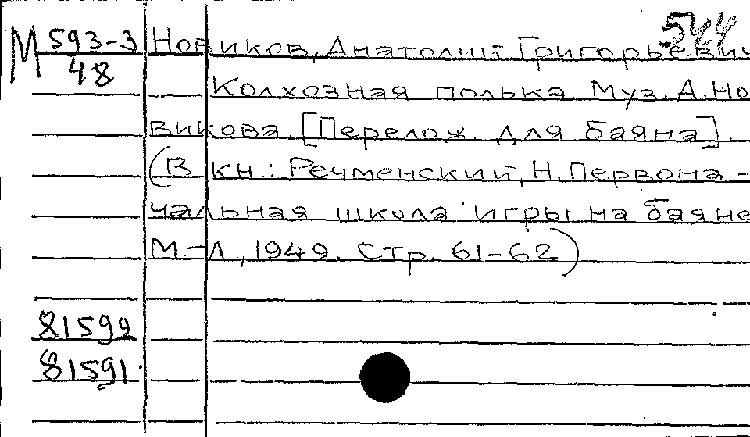 544
М 593-3 Новиков, Анатолий Григорьевич
48
Колхозная полька Муз. А. Но
викова. [Перелож. для баяна].
(В кн.: Речменский, Н. Первона-
чальная школа игры на баяне
М.-Л, 1949. Стр. 61-62)
81592
81591